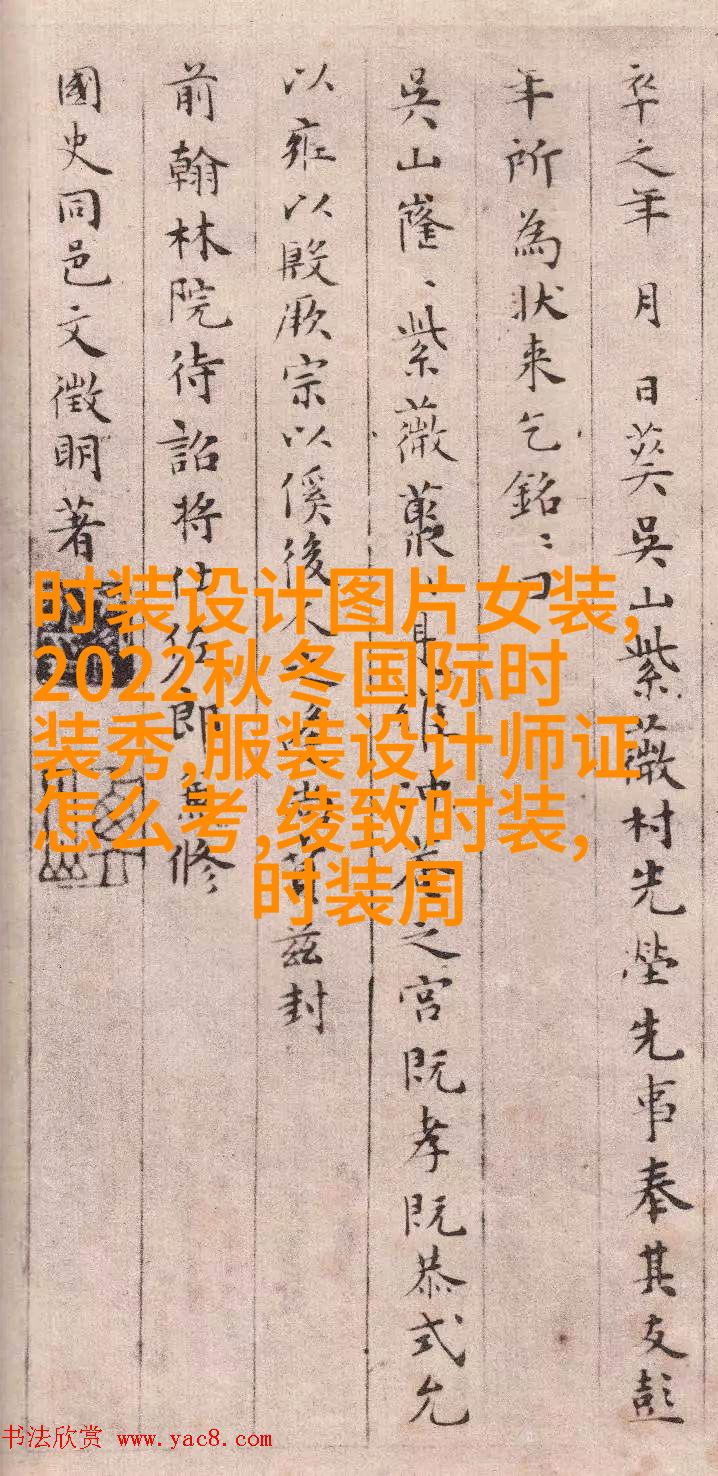 卒之年 月 日葬吳山紫薇村先塋先事奉其友彭
年所為狀来乞銘〻曰
吳山窿〻紫薇叢
之宮既孝既恭式允
以雍以殷厥宗以傒後人
兹封
前翰林院待詔將仕佐郎兼修
國史同邑文徵明著
时装设计图片女装,
2022秋冬国际时
装秀,服装设计师证
怎么考,绫致时装,
时装周
书法欣赏 www.yac8.com